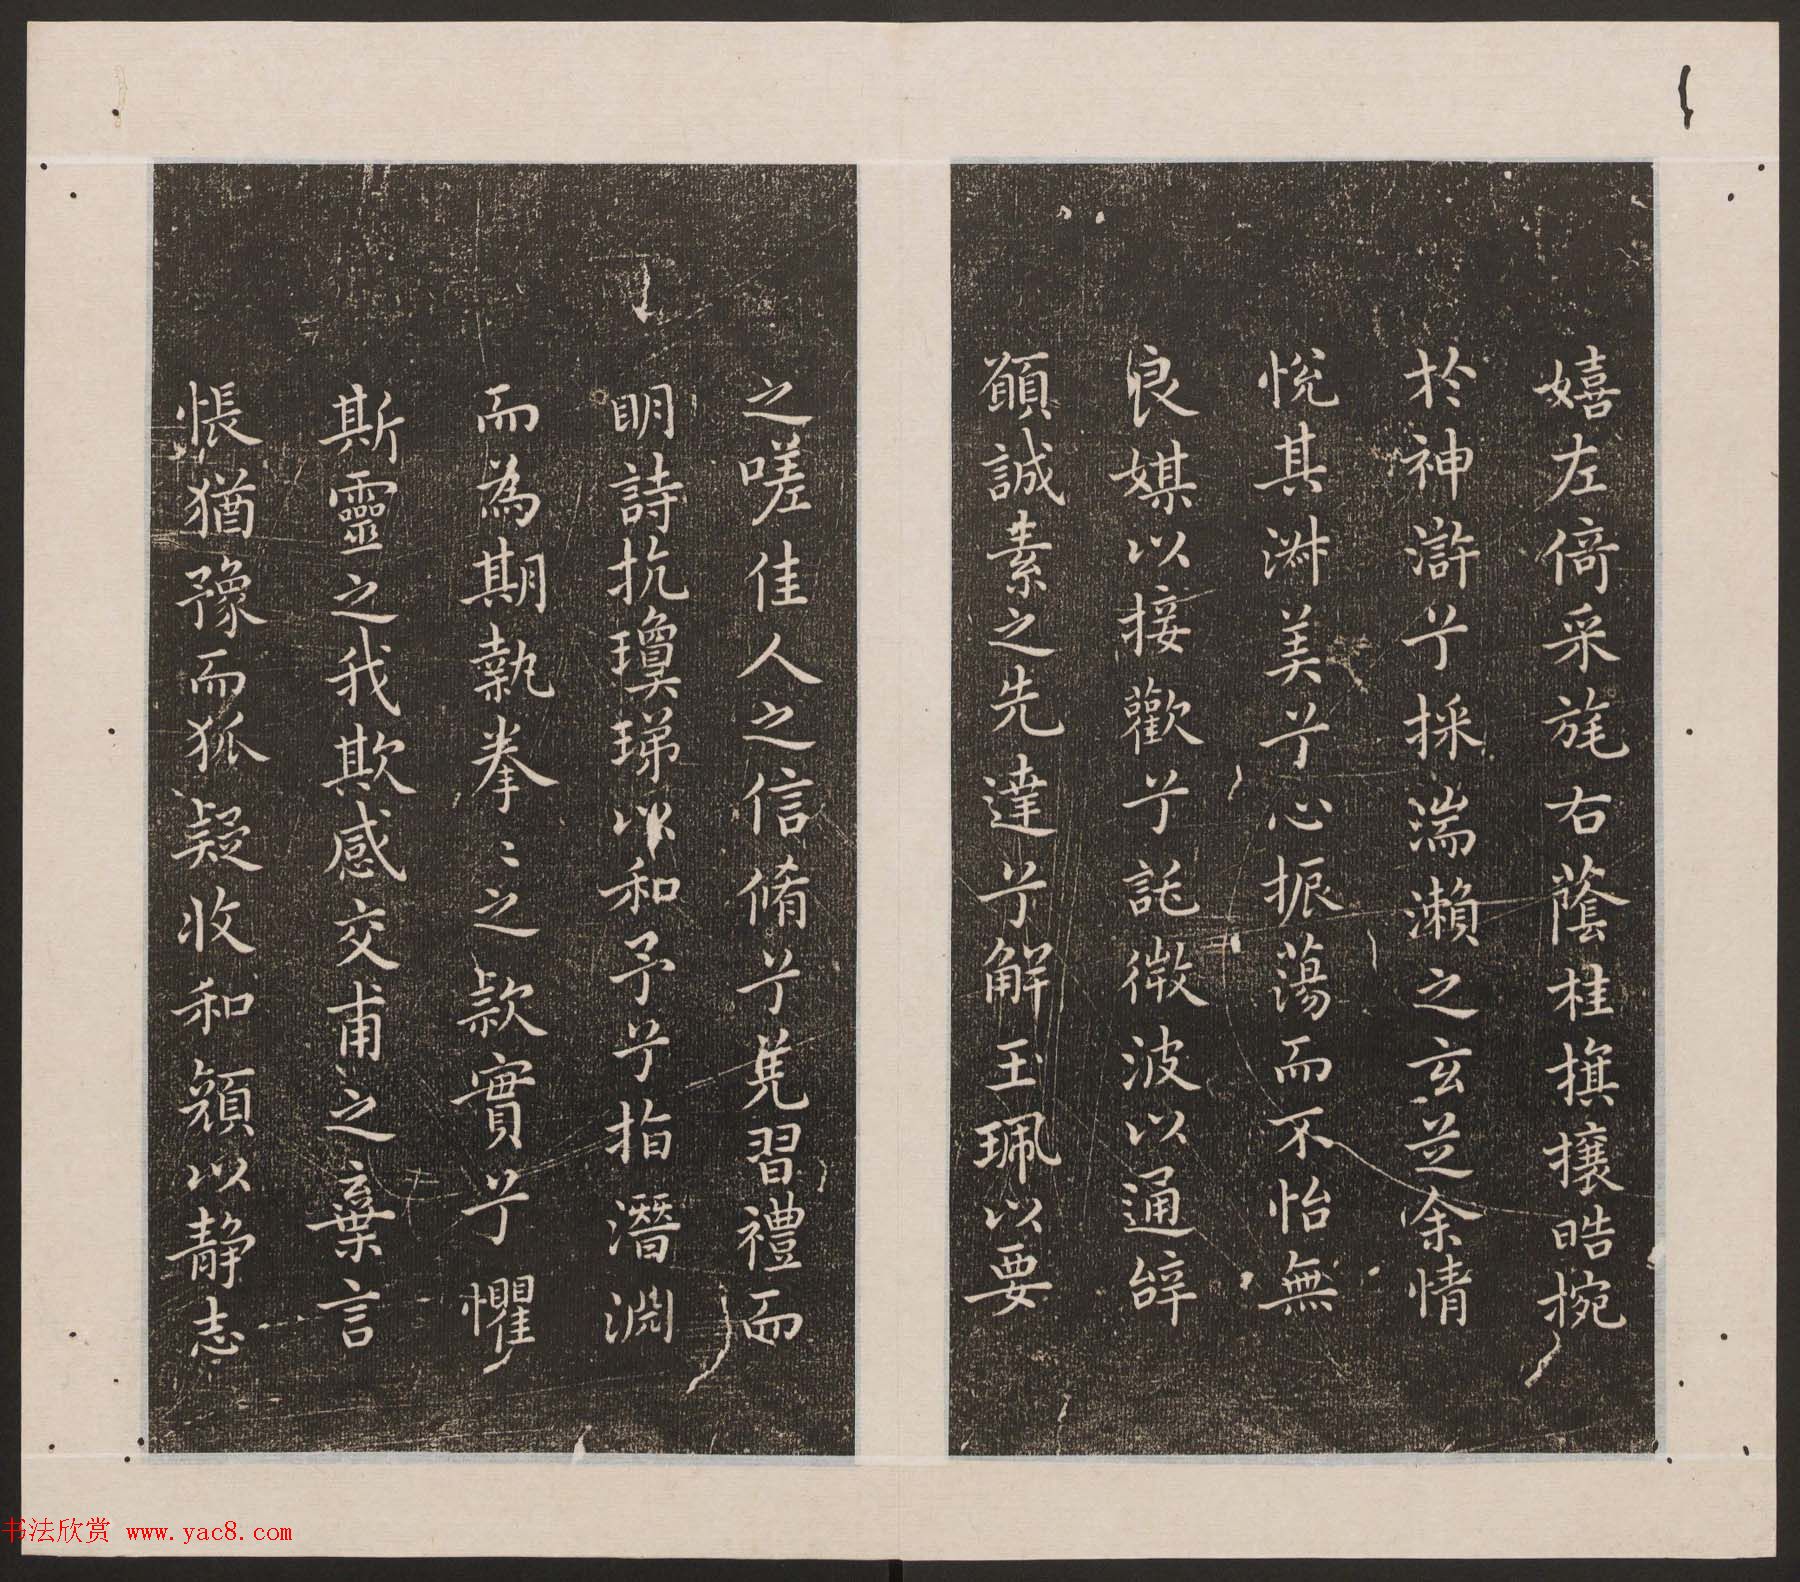 嬉左倚采旄右蔭桂旗攘皓捥
於神滸兮採湍瀨之玄芝余情
悅其淋美兮心振蕩而不怡無
良媒以接歡兮託微波以通辭
願誠素之先達兮解玉珮以要
之嗟佳人之信脩兮羌習禮而
明詩抗瓊珶以和予兮指潛淵
而為期執拳〻之款實兮懼
斯靈之我欺感交甫之棄言
悵猶豫而狐疑收和顏以静志
书法欣赏 www.yac8.com